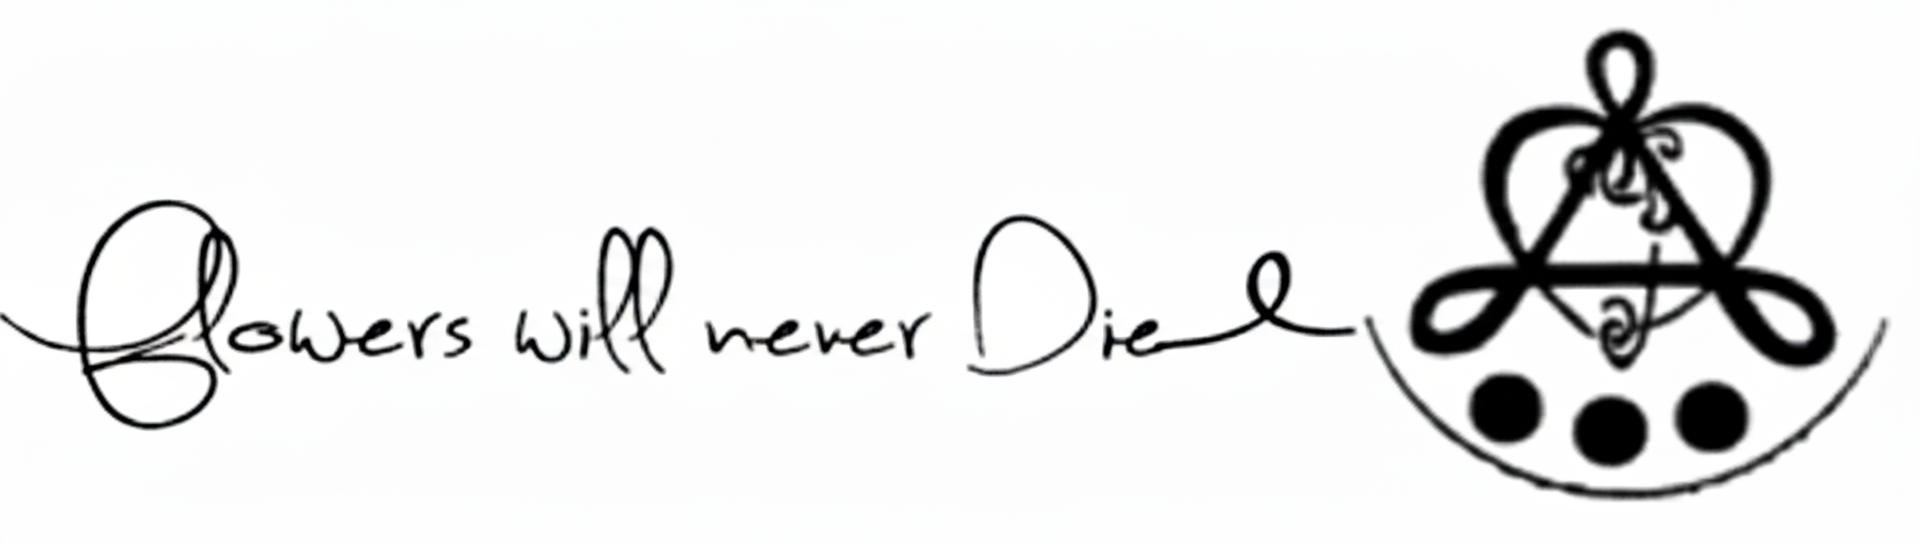 flowers will never Die